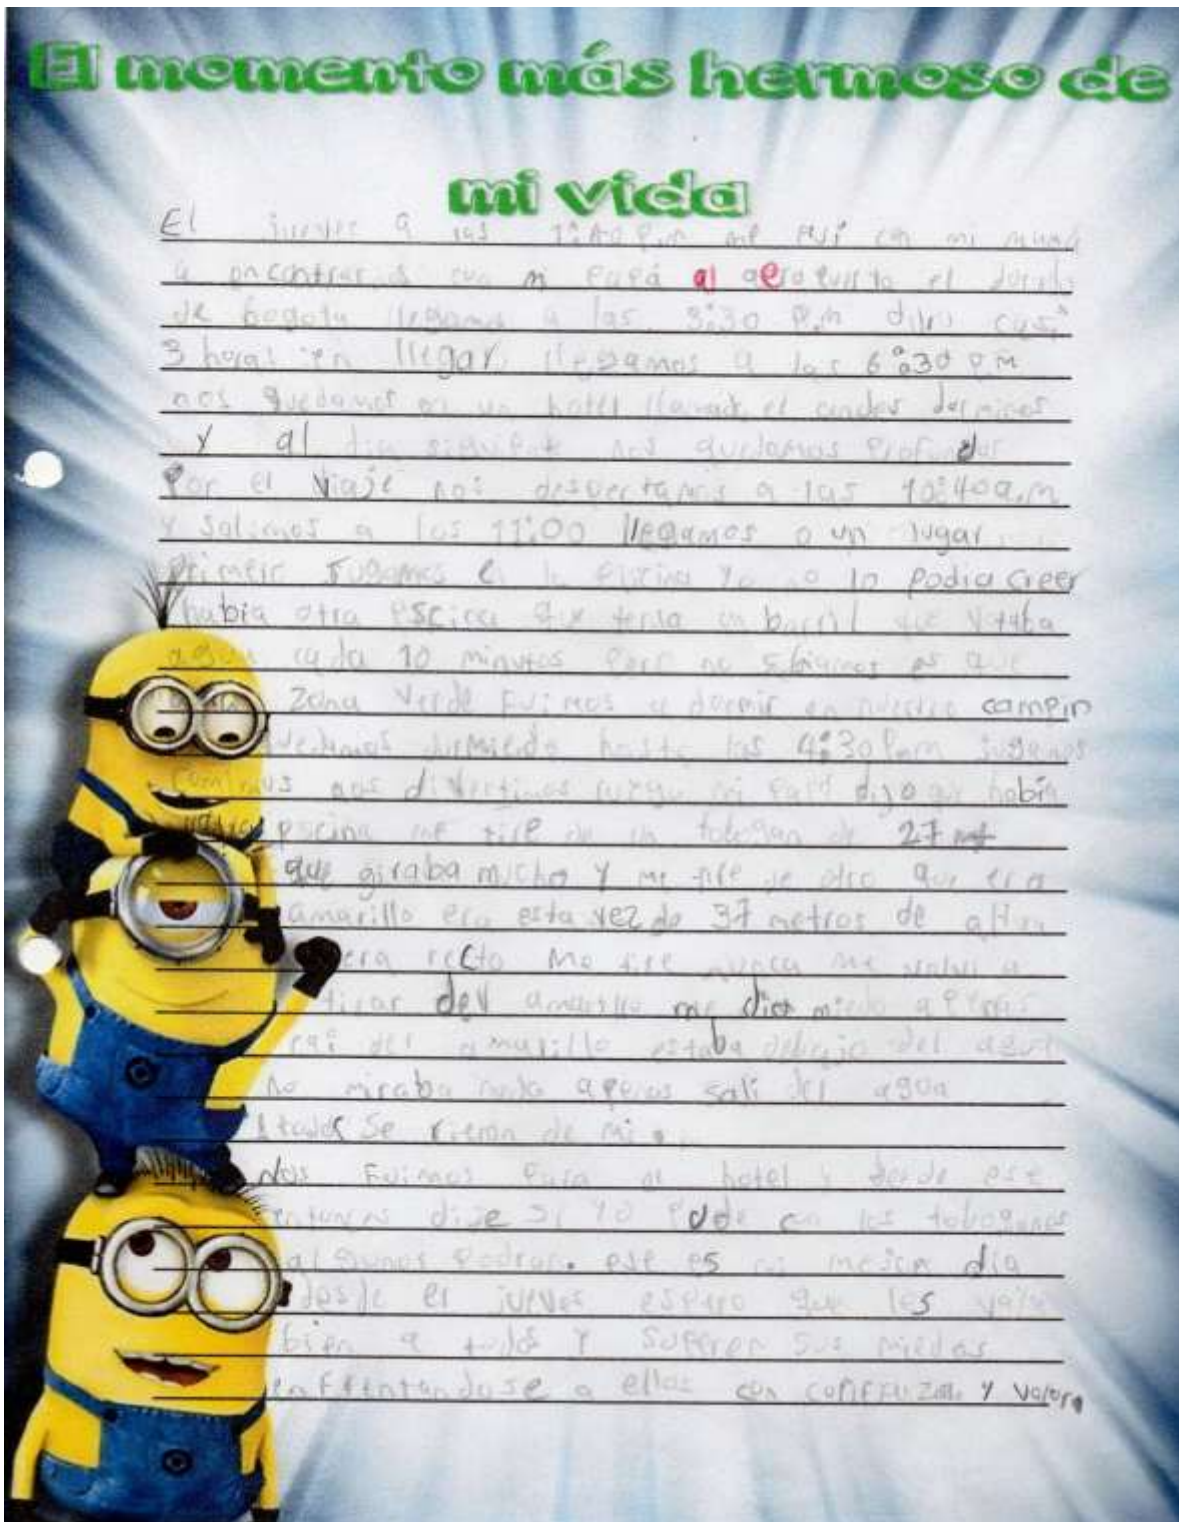 El momento más hermoso de
mi vida
El jueves a las 1:40 p.m me fui con mi mamá
a encontrarnos con mi papá al aeropuerto el dorado
de bogota llegamos a las 3:30 P.m duro casi
3 horas en llegar llegamos a las 6:30 P.M
nos quedamos en un hotel llamado el andes dormimos
y al dia siguiente nos quedamos Profundos
Por el viaje nos despertamos a las 10:40a.m
y salimos a las 11:00 llegamos a un lugar
primero Jugamos en la piscina yo no lo podia creer
habia otra PSCina que tenia un barril que votaba
agua cada 10 minutos pero no sabiamos es que
Zona verde Fuimos a dormir en nuestro campin
durmiendo hasta las 4:30 P.m jugamos
comimos nos divertimos luego mi papá dijo que habia
pscina me tire de un tobogan de 27
que giraba mucho y me tire de otro que era
amarillo era esta vez de 37 metros de altura
era recto Me tire nunca me volvi a
tirar del amarillo me dio miedo apenas
cai del amarillo estaba debajo del agua
No miraba nada apenas sali del agua
todos Se rieron de mi.
Nos Fuimos para el hotel y desde ese
entonces dije si yo pude con los toboganes
algunos podran. este es mi mejor dia
desde el jueves espero que les vaya
bien a todos y superen sus miedos
enfrentanduse a ellos con confianza y valor.